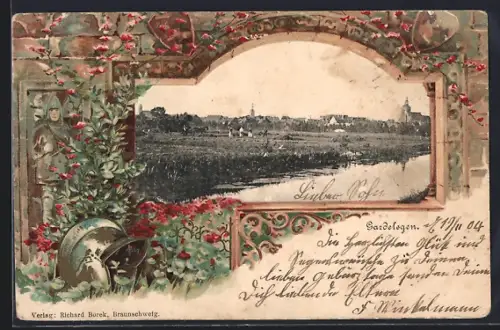 Lieber Sohn
Gardelegen. d 19/11 04
Die herzlichsten Glück und
Segenswünsche zu Deinem
lieben Geburtstage senden Deine
Dich liebenden Eltern
F Winkelmann
Verlag: Richard Borek, Braunschweig.